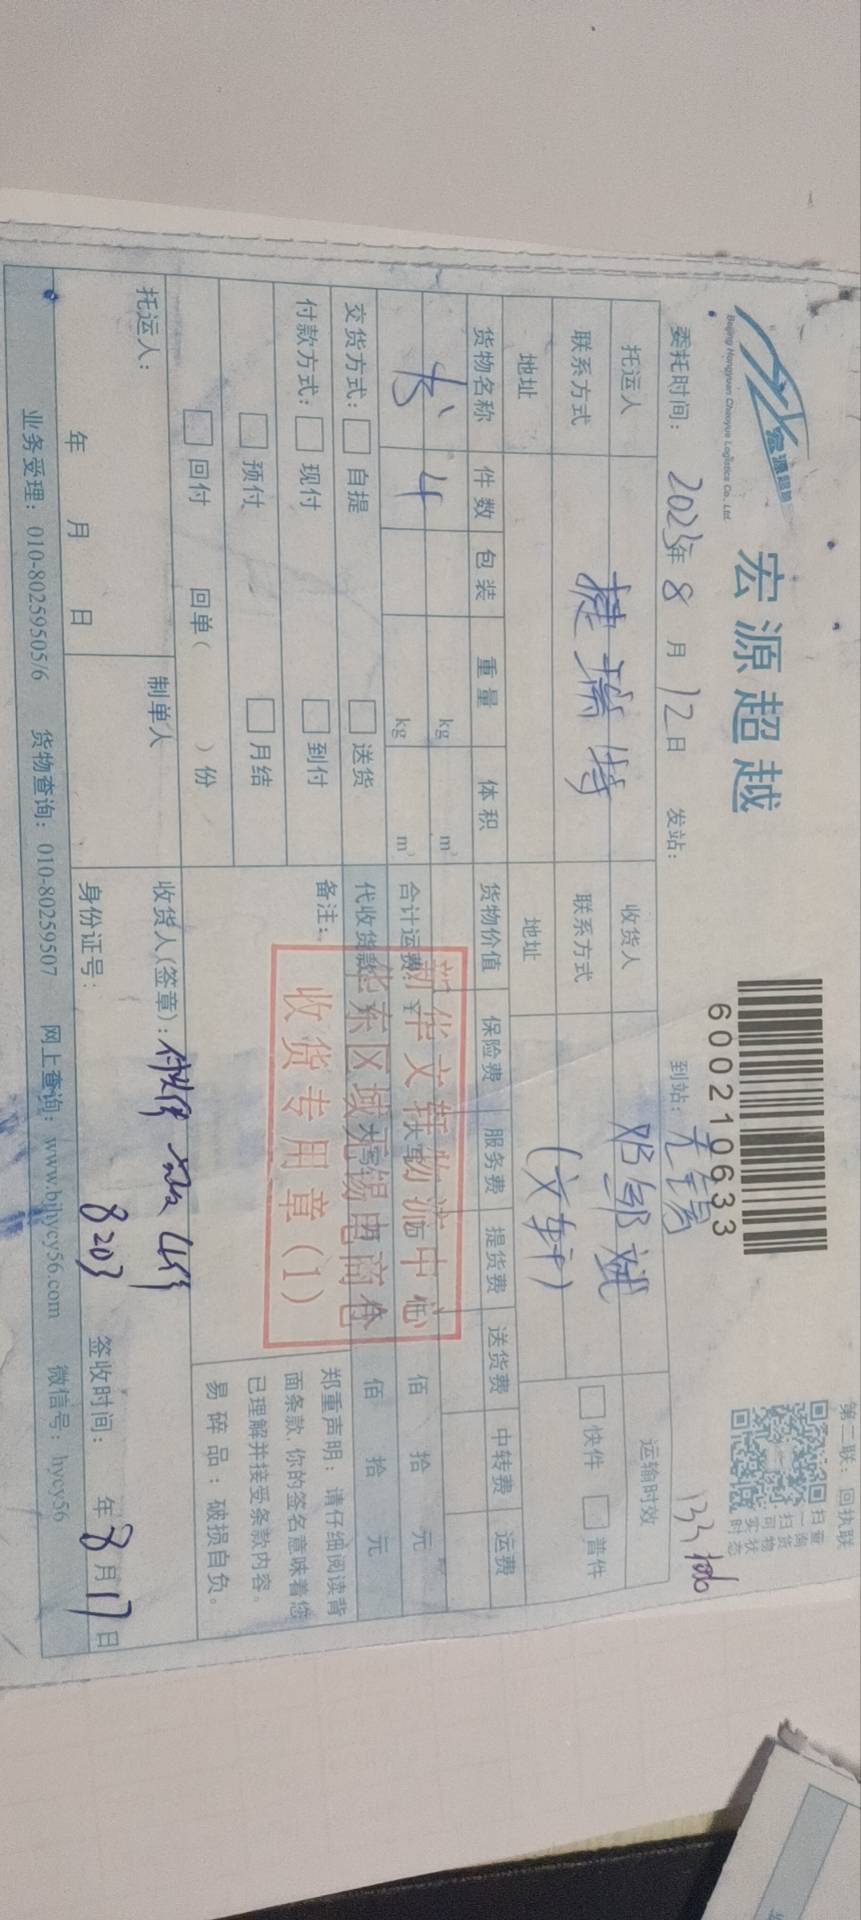 第二联：回执联
宏源超越
宏源超越
Beijing Hongyuan Chaoyue Logistics Co., Ltd.
600210633
扫一扫可实时
查询货物状态
133件
委托时间：2023年8月12日 发站： 到站：无锡
托运人 捷瑞特 收货人 邓邹斌 运输时效
联系方式 联系方式 （文轩） 快件 普件
地址 地址
货物名称 件数 包装 重量 体积 货物价值 保险费 服务费 提货费 送货费 中转费 运费
书 4 kg m³
kg m³ 合计运费：￥ 佰 拾 元
交货方式： 自提 送货 代收货款 佰 拾 元
付款方式： 现付 到付 备注：
预付 月结
回付 回单（ ）份
新华文轩物流中心
华东区域无锡电商仓
收货专用章（1）
郑重声明：请仔细阅读背
面条款，你的签名意味着您
已理解并接受条款内容。
易碎品：破损自负。
托运人： 制单人 收货人（签章）：
年 月 日 身份证号： 8203 签收时间： 年8月17日
业务受理：010-80259505/6 货物查询：010-80259507 网上查询：www.bjhycy56.com 微信号：hycy56